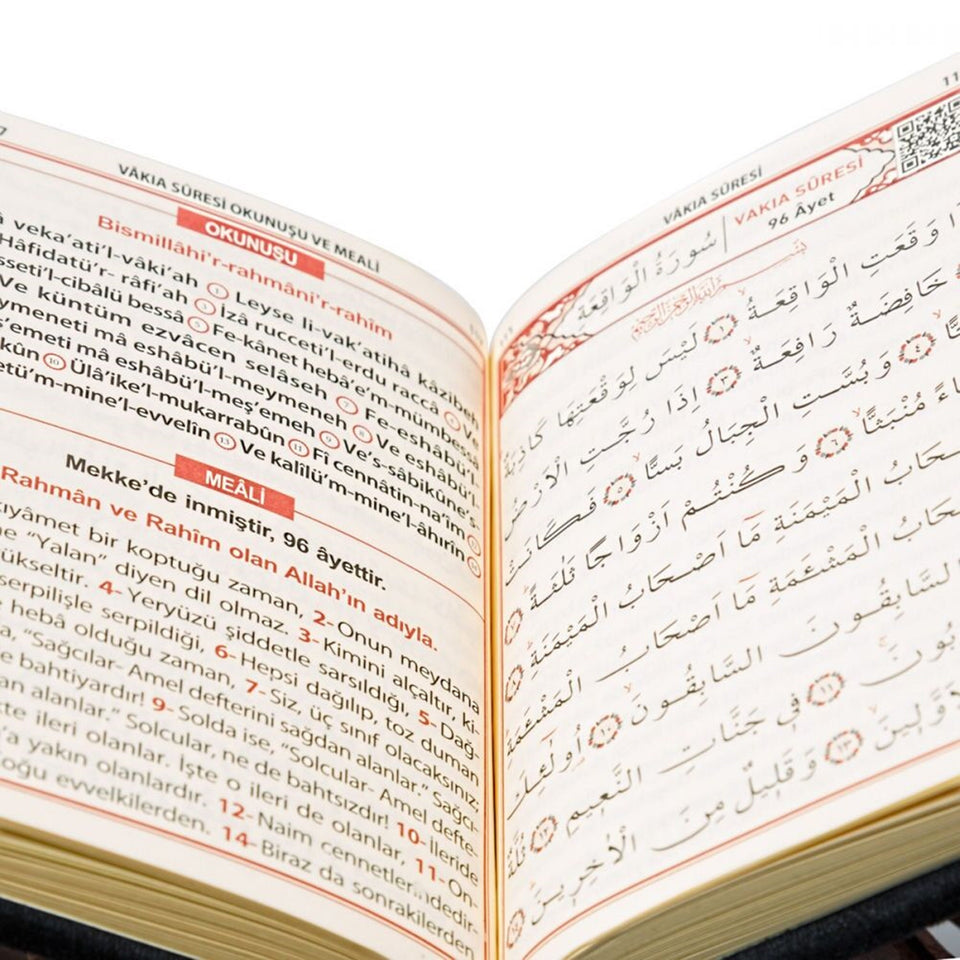 7
VÂKIA SÛRESİ OKUNUŞU VE MEALİ
OKUNUŞU
Bismillâhi'r-rahmâni'r-rahîm
veka'ati'l-vâki'ah 1 Leyse li-vak'atihâ kâzibeh
Hâfidatü'r- râfi'ah 3 İzâ rucceti'l-erdu raccâ 4 Ve
sseti'l-cibâlü bessâ 5 Fe-kânet hebâ'e'm-mümbessâ
Ve küntüm ezvâcen selâseh 7 Fe-eshâbü'l-
ymeneti mâ eshâbü'l-meymeneh 8 Ve eshâbü'l-
ş'emeti mâ eshâbü'l-meş'emeh 9 Ve's-sâbikûne's-
kûn 10 Ülâ'ike'l-mukarrabûn 11 Fî cennâtin-na'îm 12
etü'm-mine'l-evvelîn 13 Ve kalîlü'm-mine'l-âhirîn 14
MEÂLİ
Mekke'de inmiştir, 96 âyettir.
Rahmân ve Rahîm olan Allah'ın adıyla.
kıyâmet bir koptuğu zaman, 2- Onun meydana
ne "Yalan" diyen dil olmaz. 3- Kimini alçaltır, ki-
ükseltir. 4- Yeryüzü şiddetle sarsıldığı, 5- Dağ-
serpilişle serpildiği, 6- Hepsi dağılıp, toz duman
heba olduğu zaman, 7- Siz, üç sınıf olacaksınız;
a, "Sağcılar- Amel defterini sağdan alanlar." Sağcı-
e bahtiyardır! 9- Solda ise, "Solcular- Amel defte-
an alanlar." Solcular, ne de bahtsızdır! 10- İleride
te ileri olanlar. İşte o ileri de olanlar, 11- On-
'a yakın olanlardır. 12- Naim cennetlerindedir-
oğu evvelkilerden. 14- Biraz da sonrakilerden
11
VÂKIA SÛRESİ
VAKIA SÛRESİ
96 Âyet
سُورَةُ الْوَاقِعَةِ
بِسْمِ اللّٰهِ الرَّحْمٰنِ الرَّحِيمِ
وَقَعَتِ الْوَاقِعَةُ ١ لَيْسَ لِوَقْعَتِهَا كَاذِبَةٌ
خَافِضَةٌ رَافِعَةٌ ٣ اِذَا رُجَّتِ الْاَرْضُ
٤ وَبُسَّتِ الْجِبَالُ بَسًّا ٥ فَكَانَتْ
مُنْبَثًّا ٦ وَكُنْتُمْ اَزْوَاجًا ثَلٰثَةً ٧
الْمَيْمَنَةِ مَا اَصْحَابُ الْمَيْمَنَةِ ٨
الْمَشْـَٔمَةِ مَا اَصْحَابُ الْمَشْـَٔمَةِ
السَّابِقُونَ السَّابِقُونَ ١٠ اُولٰٓئِكَ
بُونَ ١١ فِي جَنَّاتِ النَّعِيمِ ١٢ ثُلَّةٌ
وَّلِينَ ١٣ وَقَلِيلٌ مِنَ الْاٰخِرِينَ ١٤